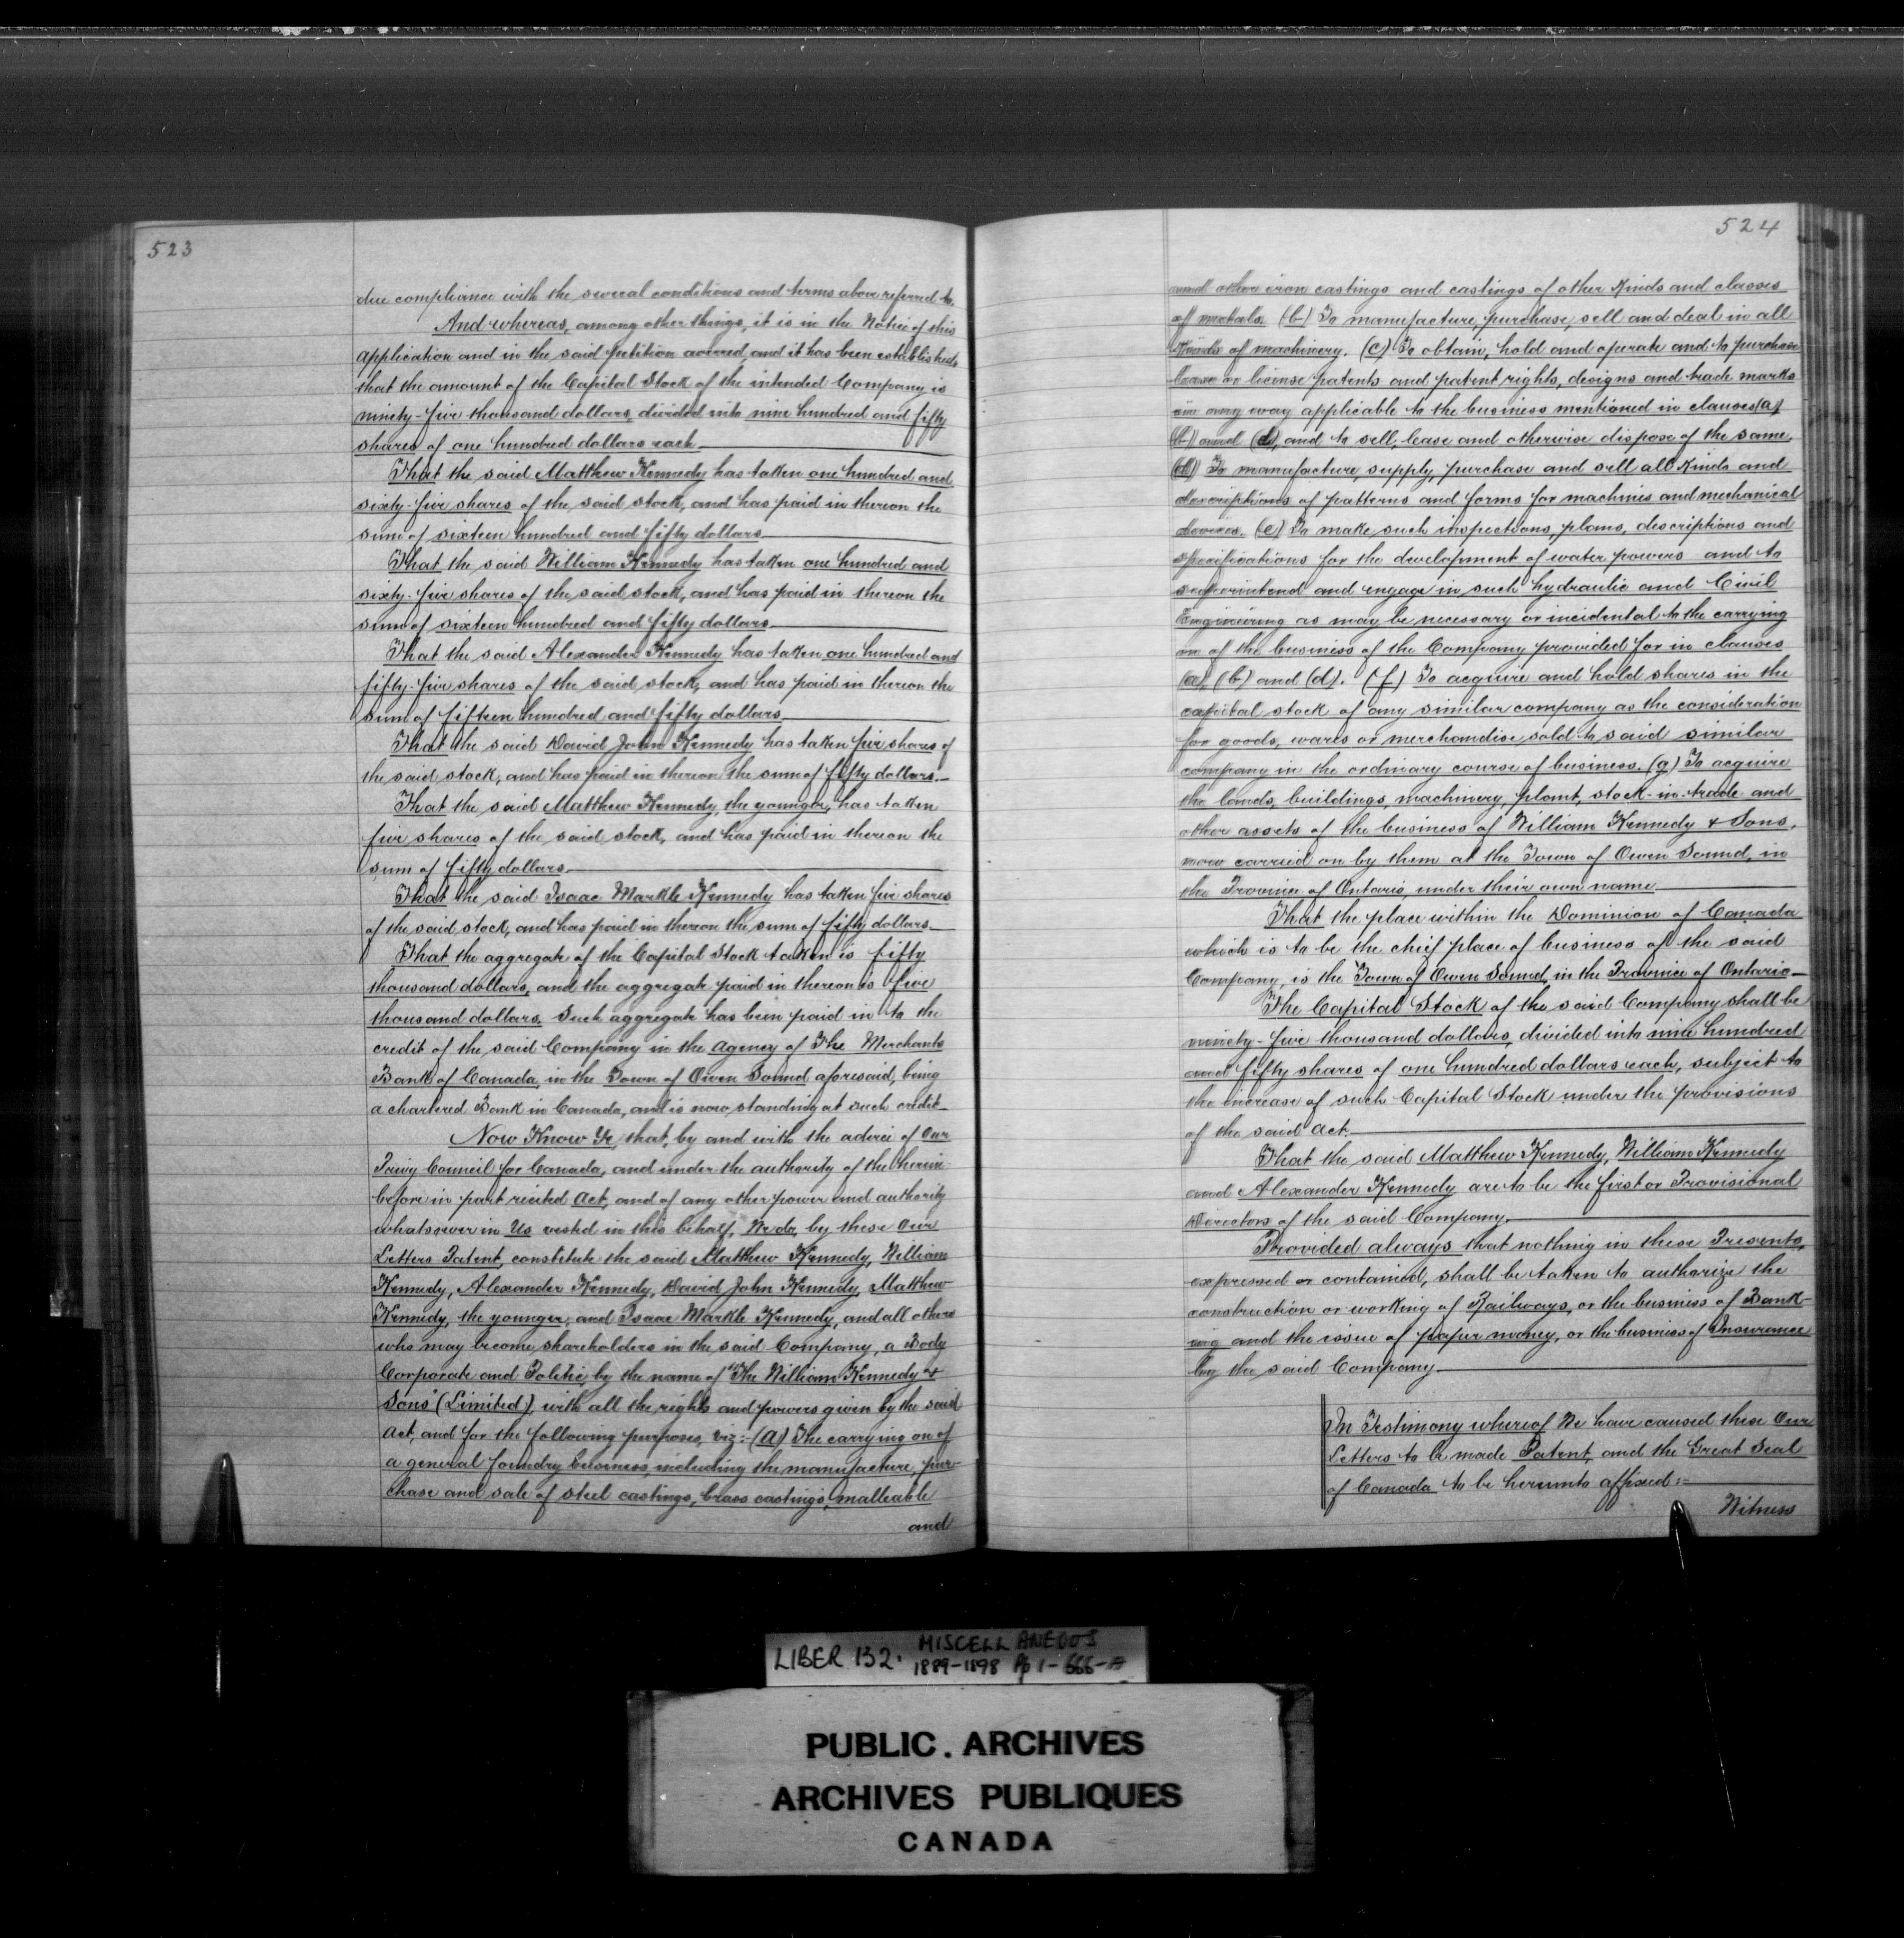 523
due compliance with the several conditions and terms above referred to.
And whereas, among other things, it is in the Notice of this
application and in the said petition averred, and it has been established,
that the amount of the Capital Stock of the intended Company is
ninety-five thousand dollars, divided into nine hundred and fifty
shares of one hundred dollars each.
That the said Matthew Kennedy has taken one hundred and
sixty-five shares of the said stock, and has paid in thereon the
sum of sixteen hundred and fifty dollars.
That the said William Kennedy has taken one hundred and
sixty-five shares of the said stock, and has paid in thereon the
sum of sixteen hundred and fifty dollars.
That the said Alexander Kennedy has taken one hundred and
fifty-five shares of the said stock, and has paid in thereon the
sum of fifteen hundred and fifty dollars.
That the said David John Kennedy has taken five shares of
the said stock, and has paid in thereon the sum of fifty dollars.
That the said Matthew Kennedy, the younger, has taken
five shares of the said stock, and has paid in thereon the
sum of fifty dollars.
That the said Isaac Markle Kennedy has taken five shares
of the said stock, and has paid in thereon the sum of fifty dollars.
That the aggregate of the Capital Stock taken is fifty
thousand dollars, and the aggregate paid in thereon is five
thousand dollars. Such aggregate has been paid in to the
credit of the said Company in the Agency of The Merchants
Bank of Canada, in the Town of Owen Sound aforesaid, being
a chartered Bank in Canada, and is now standing at such credit.
Now Know Ye, that, by and with the advice of Our
Privy Council for Canada, and under the authority of the herein-
before in part recited Act, and of any other power and authority
whatsoever in Us vested in this behalf, We do, by these Our
Letters Patent, constitute the said Matthew Kennedy, William
Kennedy, Alexander Kennedy, David John Kennedy, Matthew
Kennedy, the younger, and Isaac Markle Kennedy, and all others
who may become shareholders in the said Company, a Body
Corporate and Politic, by the name of "The William Kennedy &
Sons" (Limited), with all the rights and powers given by the said
Act, and for the following purposes, viz:- (a) The carrying on of
a general foundry business, including the manufacture, pur-
chase and sale of steel castings, brass castings, malleable
and
524
and other iron castings and castings of other Kinds and classes
of metals. (b) To manufacture, purchase, sell and deal in all
Kinds of machinery. (c) To obtain, hold and operate and to purchase
lease or license patents and patent rights, designs and trade marks
in any way applicable to the business mentioned in clauses (a)
(b) and (d), and to sell, lease and otherwise dispose of the same.
(d) To manufacture, supply, purchase and sell all Kinds and
descriptions of patterns and forms for machines and mechanical
devices. (e) To make such inspections, plans, descriptions and
specifications for the development of water powers and to
superintend and engage in such hydraulic and Civil
Engineering as may be necessary or incidental to the carrying
on of the business of the Company provided for in clauses
(a), (b) and (d). (f) To acquire and hold shares in the
capital stock of any similar company as the consideration
for goods, wares or merchandise sold to said similar
company in the ordinary course of business. (g) To acquire
the lands, buildings, machinery, plant, stock-in-trade and
other assets of the business of William Kennedy & Sons,
now carried on by them at the Town of Owen Sound, in
the Province of Ontario, under their own name.
That the place within the Dominion of Canada
which is to be the chief place of business of the said
Company, is the Town of Owen Sound, in the Province of Ontario.
The Capital Stock of the said Company shall be
ninety-five thousand dollars, divided into nine hundred
and fifty shares of one hundred dollars each, subject to
the increase of such Capital Stock under the provisions
of the said Act.
That the said Matthew Kennedy, William Kennedy
and Alexander Kennedy are to be the first or Provisional
Directors of the said Company.
Provided always that nothing in these Presents,
expressed or contained, shall be taken to authorize the
construction or working of Railways, or the business of Bank-
ing and the issue of paper money, or the business of Insurance
by the said Company.
In Testimony whereof We have caused these Our
Letters to be made Patent, and the Great Seal
of Canada to be hereunto affixed:-
Witness
LIBER 132. MISCELLANEOUS
1889-1898 Pp 1-666-A
PUBLIC. ARCHIVES
ARCHIVES PUBLIQUES
CANADA